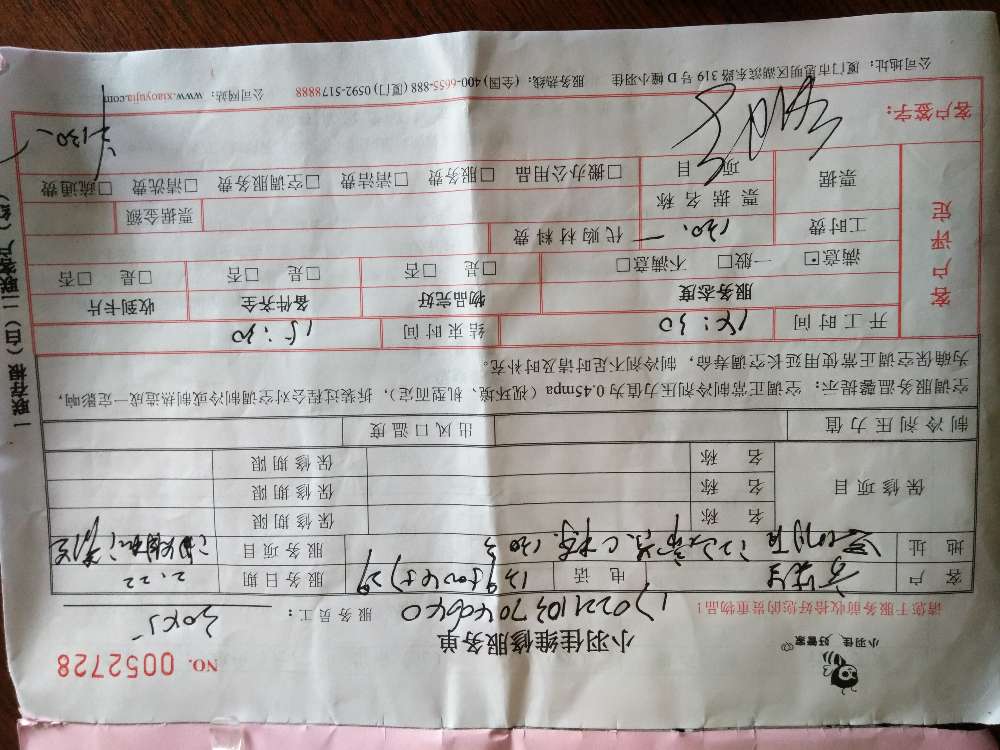 小羽佳、好管家
小羽佳维修服务单
NO. 0052728
请您于服务前收拾好您的贵重物品!
服务员工:
客 户
电 话
服务日期 2.22
地 址
服务项目
保修项目
名 称 保修期限
名 称 保修期限
名 称 保修期限
制冷剂压力值 出风口温度
空调服务温馨提示: 空调正常制冷剂压力值为0.45mpa(视环境、机型而定), 拆装过程会对空调制冷或制热造成一定影响,
为确保空调正常使用延长空调寿命, 制冷剂不足时请及时补充。
客户评定
开工时间 14:30 结束时间 15:30
服务态度 物品完好 备件齐全 收到卡片
满意☑ 一般□ 不满意□ 是□ 否 □是 □否 □是 □否
工时费 130.— 代购材料费
票据 票据名称 票据金额
项 目 □搬办公用品 □服务费 □清洁费 □空调服务费 □清洗费 □疏通费
客户签字:
130.—
公司地址: 厦门市思明区湖滨东路319号D幢小羽佳 服务热线: (全国) 400-6655-888 (厦门) 0592-5178888 公司网站: www.xiaoyujia.com
一联存根(白)二联客户(红)